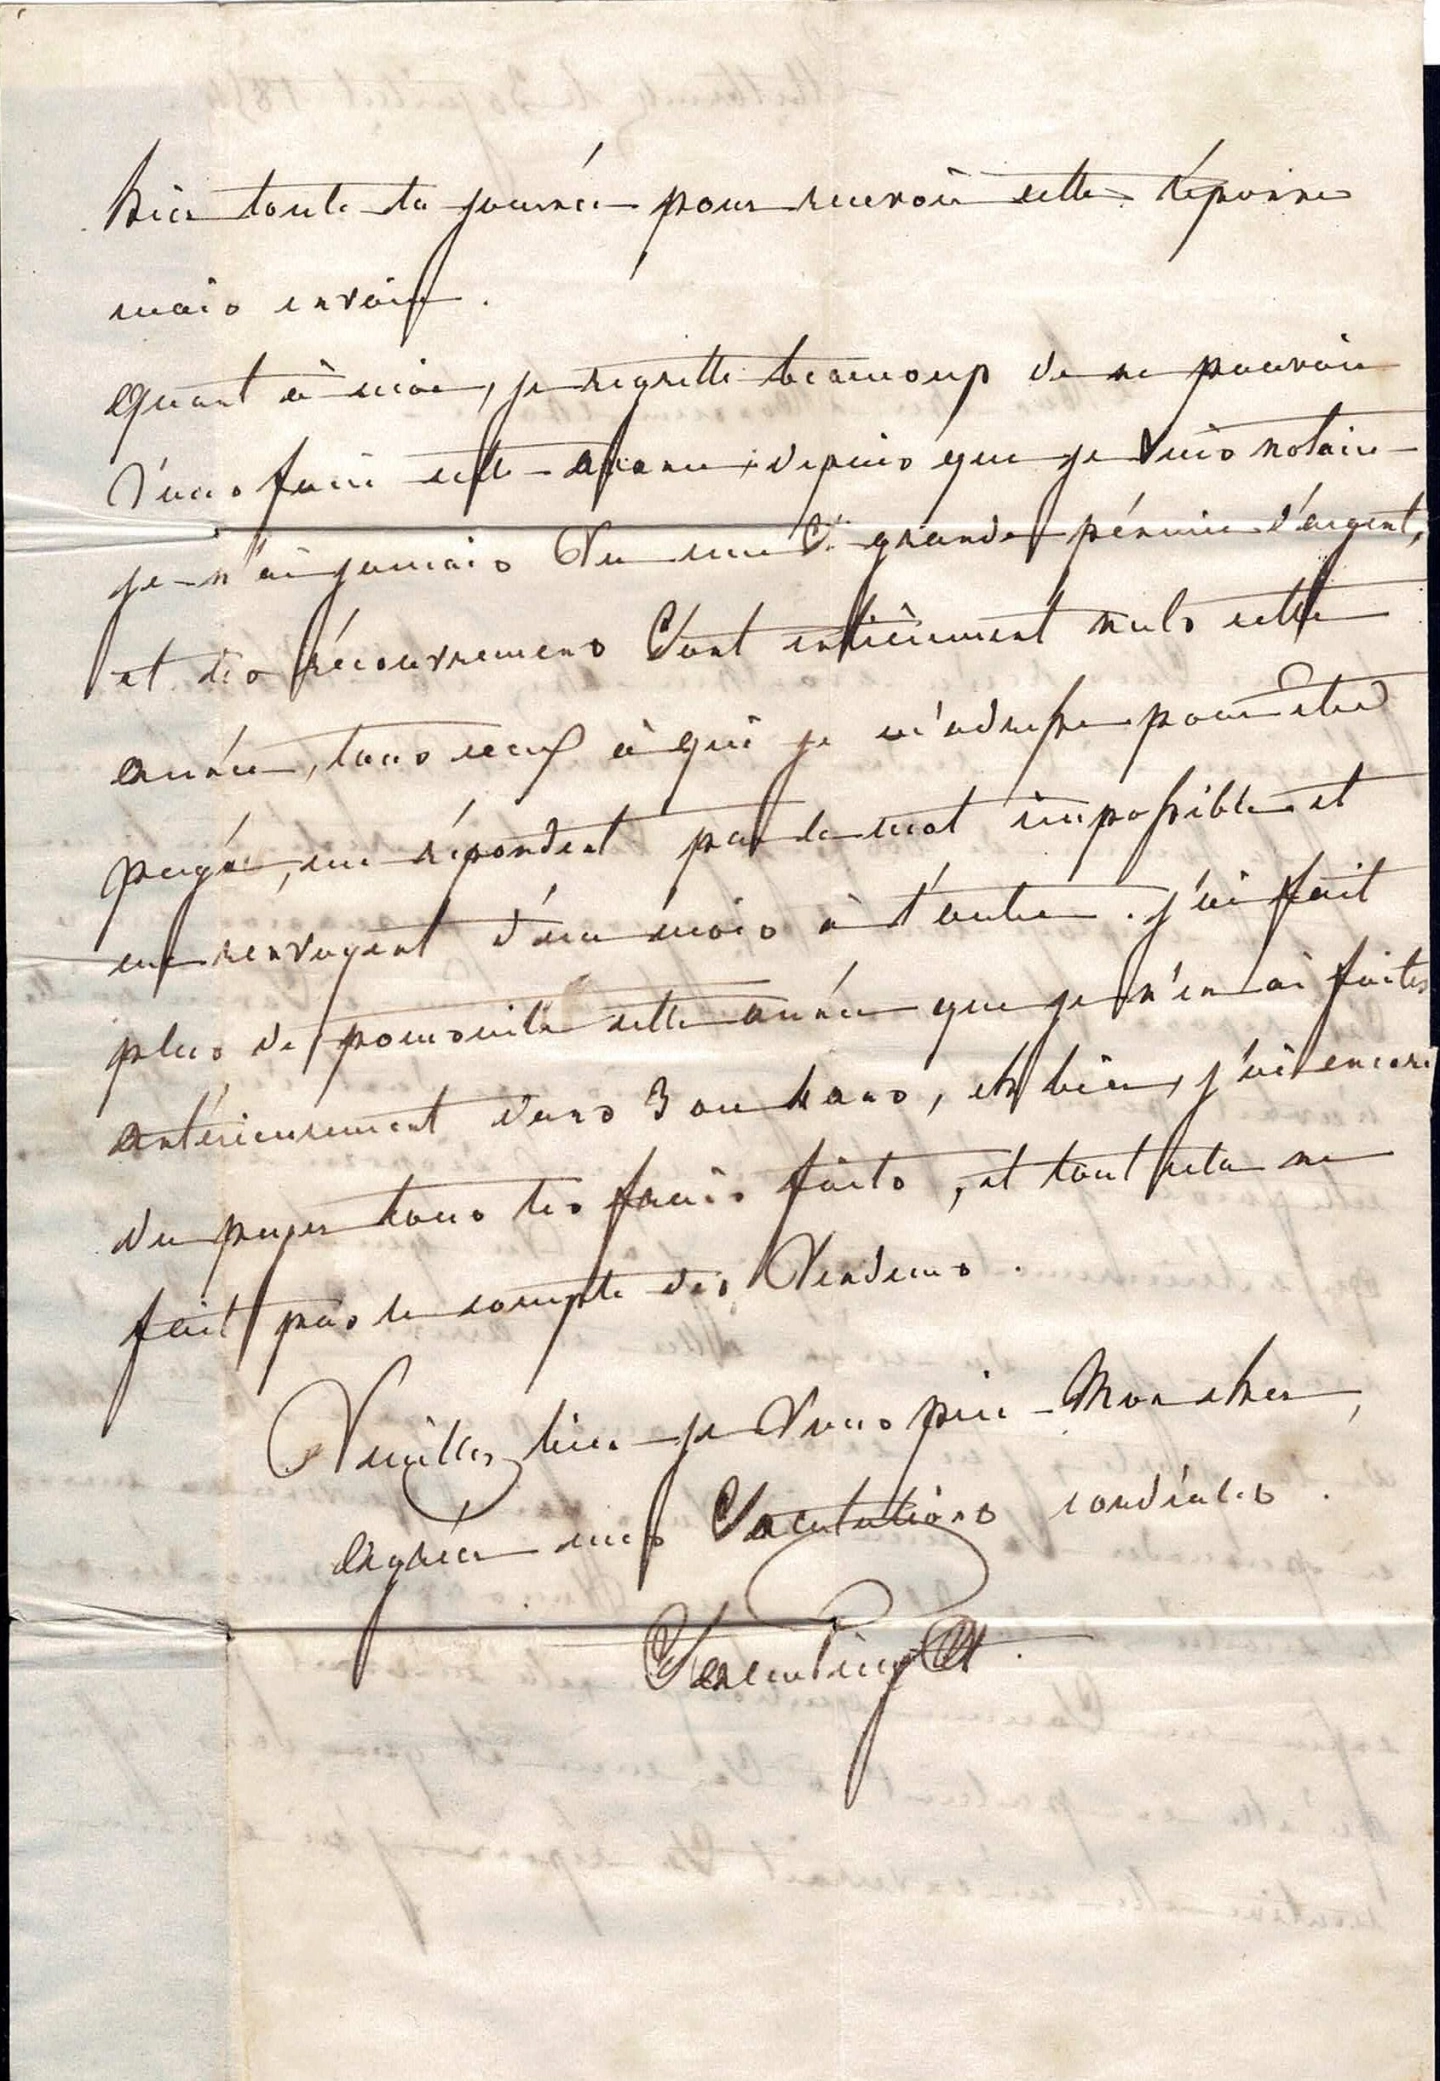 hier toute la journée pour recevoir cette réponse
mais en vain.
Quant à moi, je regrette beaucoup de ne pouvoir
vous faire cette avance, depuis que je suis notaire
je n'ai jamais vu une si grande pénurie d'argent,
et les récouvremens sont entièrement nuls cette
année, tous ceux à qui je m'adresse pour être
payé, me répondent par le mot impossible et
me renvoyent d'un mois à l'autre. j'ai fait
plus de poursuites cette année que je n'en ai faites
antérieurement dans 3 ou 4 ans, eh bien, j'ai encore
du payer tous les frais faits, et tout cela ne
fait pas le compte des vendeurs.
Veuillez bien je vous prie Mon cher,
agréer mes salutations cordiales.